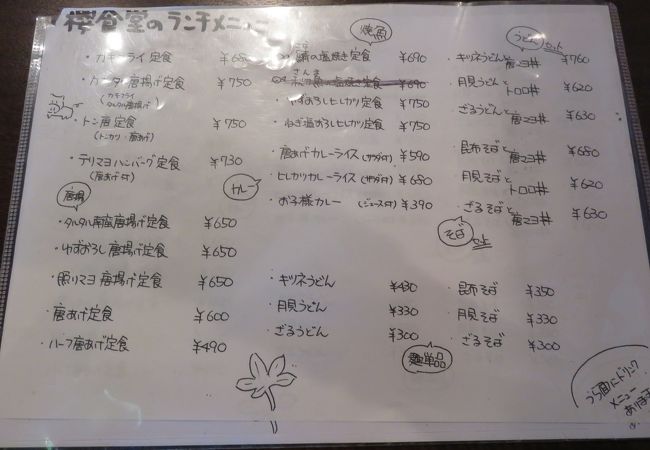 櫻食堂のランチメニュー
・カキフライ定食 ¥680
・カキタル唐揚げ定食 ¥750
(カキフライ
タルタル唐揚げ)
・トン唐定食 ¥750
(トンカツ・唐あげ)
・テリマヨハンバーグ定食 ¥730
(唐あげ付)
唐揚
・タルタル南蛮唐揚げ定食 ¥650
・ゆずおろし唐揚げ定食 ¥650
・照リマヨ唐揚げ定食 ¥650
・唐あげ定食 ¥600
・ハーフ唐あげ定食 ¥490
焼魚
サバ
鯖の塩焼き定食 ¥690
さんま
秋刀魚の塩焼き定食 ¥690
・ゆずおろしヒレカツ定食 ¥750
・ねぎ塩おろしヒレカツ定食 ¥750
カレー
・唐あげカレーライス(サラダ付) ¥590
・ヒレカツカレーライス(サラダ付) ¥680
・お子様カレー (ジュース付) ¥390
・キツネうどん ¥430
・月見うどん ¥330
・ざるうどん ¥300
麺単品
うどんセット
・キツネうどんと唐マヨ丼 ¥760
・月見うどんとトロロ丼 ¥620
・ざるうどんと唐マヨ丼 ¥630
・昆布そばと唐マヨ丼 ¥680
・月見そばとトロロ丼 ¥620
・ざるそばと唐マヨ丼 ¥630
そばセット
・昆布そば ¥350
・月見そば ¥330
・ざるそば ¥300
うら面にドリンク
メニュー
あります